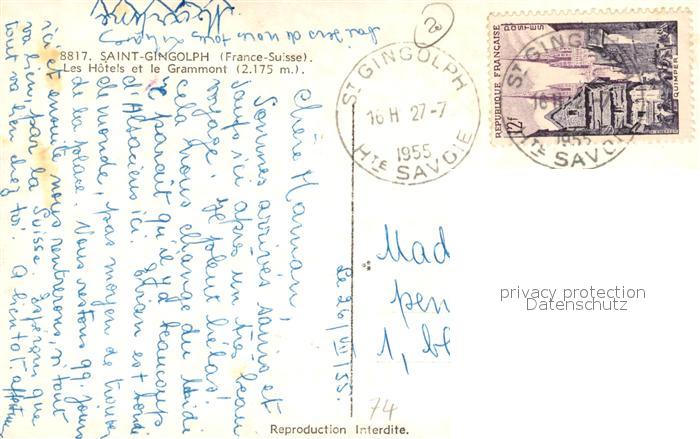 8817. SAINT-GINGOLPH (France-Suisse).
Les Hôtels et le Grammont (2.175 m.).
Le 26/VII/55.
Chère Maman,
Sommes arrivés sains et
saufs ici après un très beau
voyage. Il pleut hélas!
cela nous change du Midi
Il paraît qu'il y a beaucoup
d'Alsaciens ici. Evian est bondé
de monde, pas moyen de trouver
de la place. Nous restons qq. jours
ici et ensuite nous rentrerons, si tout
va bien, par la Suisse. Espérons que
tout va bien chez toi. A bientôt
de nous tous
20
ST GINGOLPH
16 H 27-7
1955
HTE SAVOIE
REPUBLIQUE FRANÇAISE
POSTES
12F
QUIMPER
ST GINGOLPH
16 H 27-7
1955
HTE SAVOIE
Mad
pen
1, bl
privacy protection
Datenschutz
74
Reproduction Interdite.